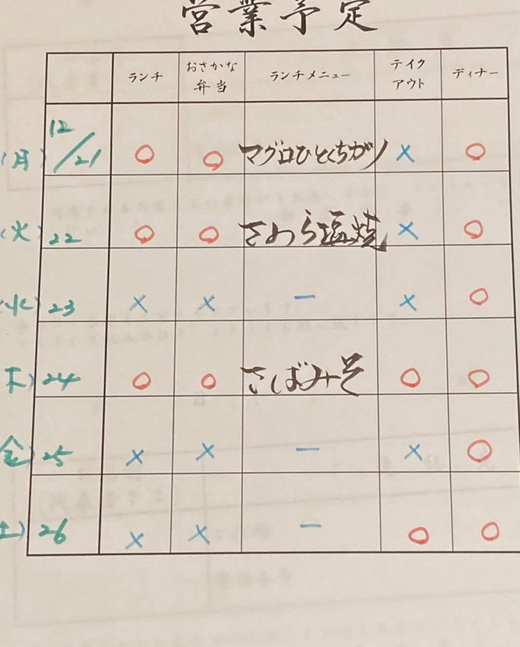 営業予定
ランチ おさかな弁当 ランチメニュー テイクアウト ディナー
(月) 12/21 ○ ○ マグロひとくちカツ × ○
(火) 22 ○ ○ さわら塩焼 × ○
(水) 23 × × ー × ○
(木) 24 ○ ○ さばみそ ○ ○
(金) 25 × × ー × ○
(土) 26 × × ー ○ ○